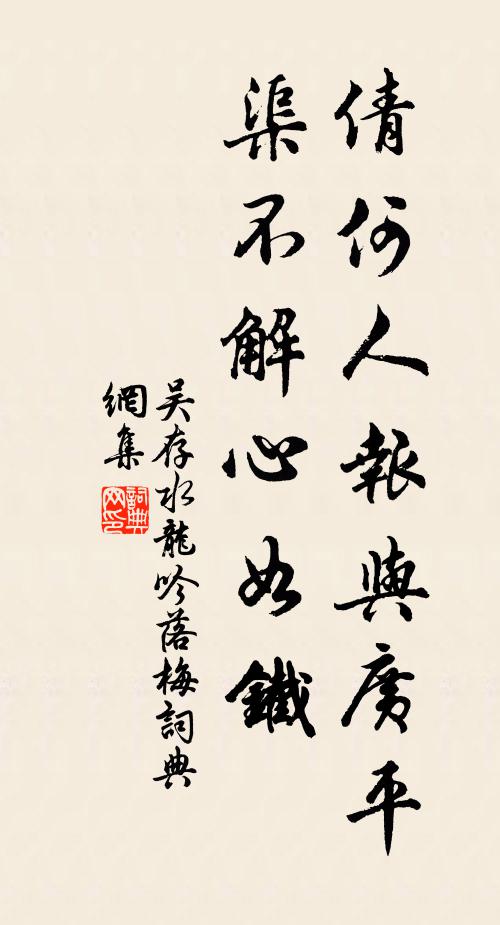 倩何人報與廣平
渠不解心如鐵
吴存水龍吟落梅詞典
網集
詞典
网印